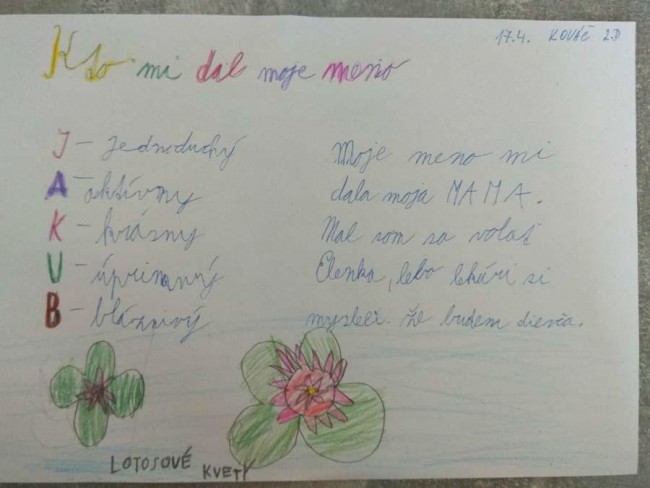 17.4. KOVÁČ 2.D
Kto mi dal moje meno
J - jednoduchý
A - aktívny
K - krásny
U - úprimný
B - bláznivý
Moje meno mi
dala moja MAMA.
Mal som sa volať
Elenka, lebo lekári si
mysleli že budem dievča.
LOTOSOVÉ KVETY